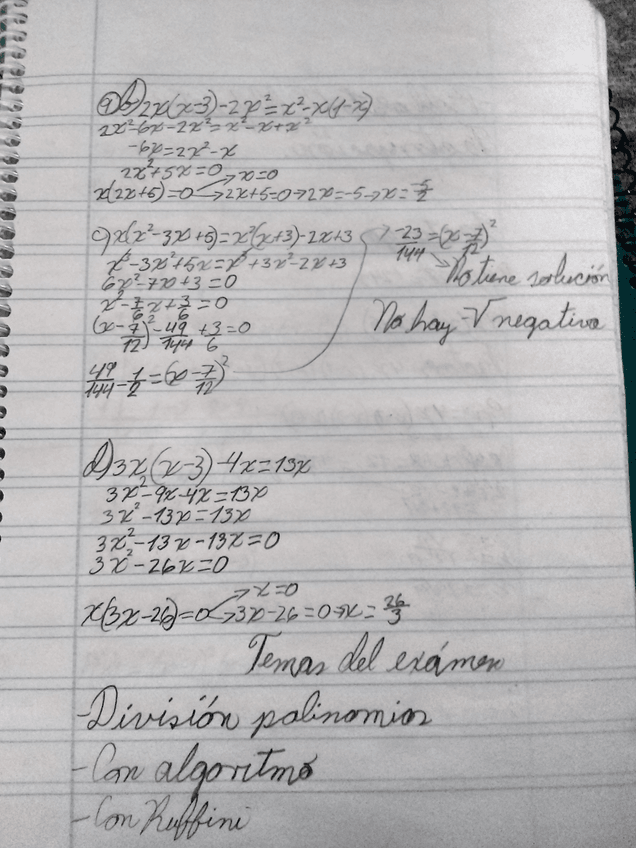 9) b) 2x(x-3)-2x²=x²-x(1-x)
2x²-6x-2x²=x²-x+x²
-6x=2x²-x
2x²+5x=0 → x=0
x(2x+5)=0 → 2x+5=0 → 2x=-5 → x=-5/2
c) x(x²-3x+5)=x²(x+3)-2x+3
x³-3x²+5x=x³+3x²-2x+3
6x²-7x+3=0
x²-7/6x+3/6=0
(x-7/12)²-49/144+3/6=0
49/144-1/2=(x-7/12)²
-23/144=(x-7/12)²
No tiene solución
No hay √ negativa
d) 3x(x-3)-4x=13x
3x²-9x-4x=13x
3x²-13x=13x
3x²-13x-13x=0
3x²-26x=0
x(3x-26)=0 → x=0
→ 3x-26=0 → x=26/3
Temas del exámen
-División polinomios
-Con algoritmo
-Con Ruffini